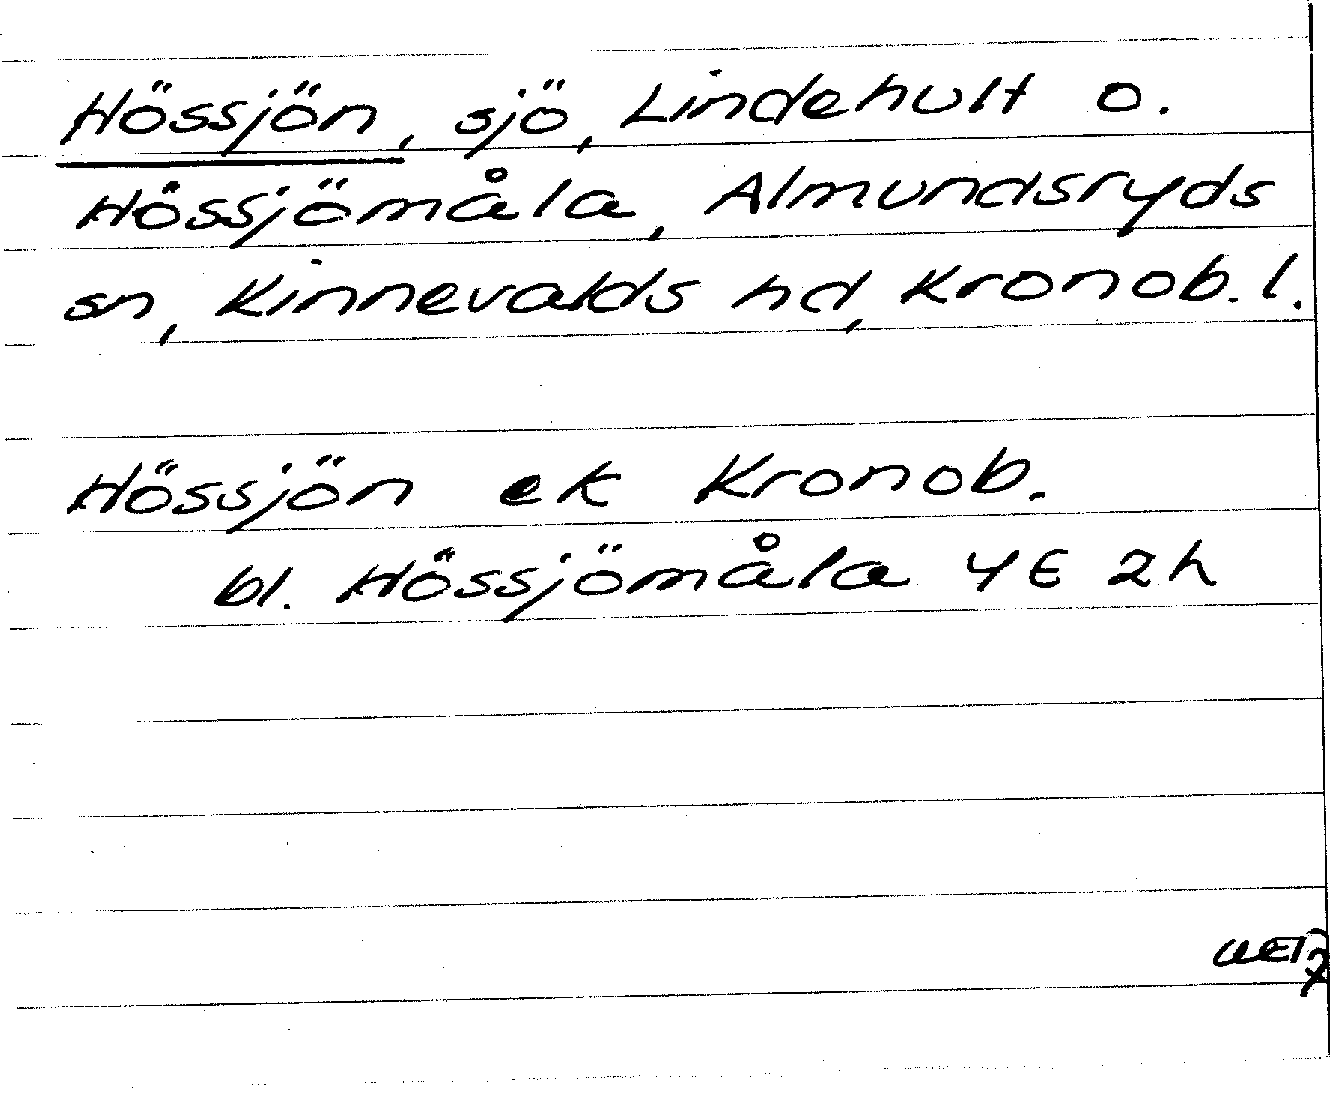 Hössjön, sjö, Lindehult o.
Hössjömåla, Almundsryds
sn, Kinnevalds hd, Kronob. l.
Hössjön ek Kronob.
bl. Hössjömåla 4E 2h